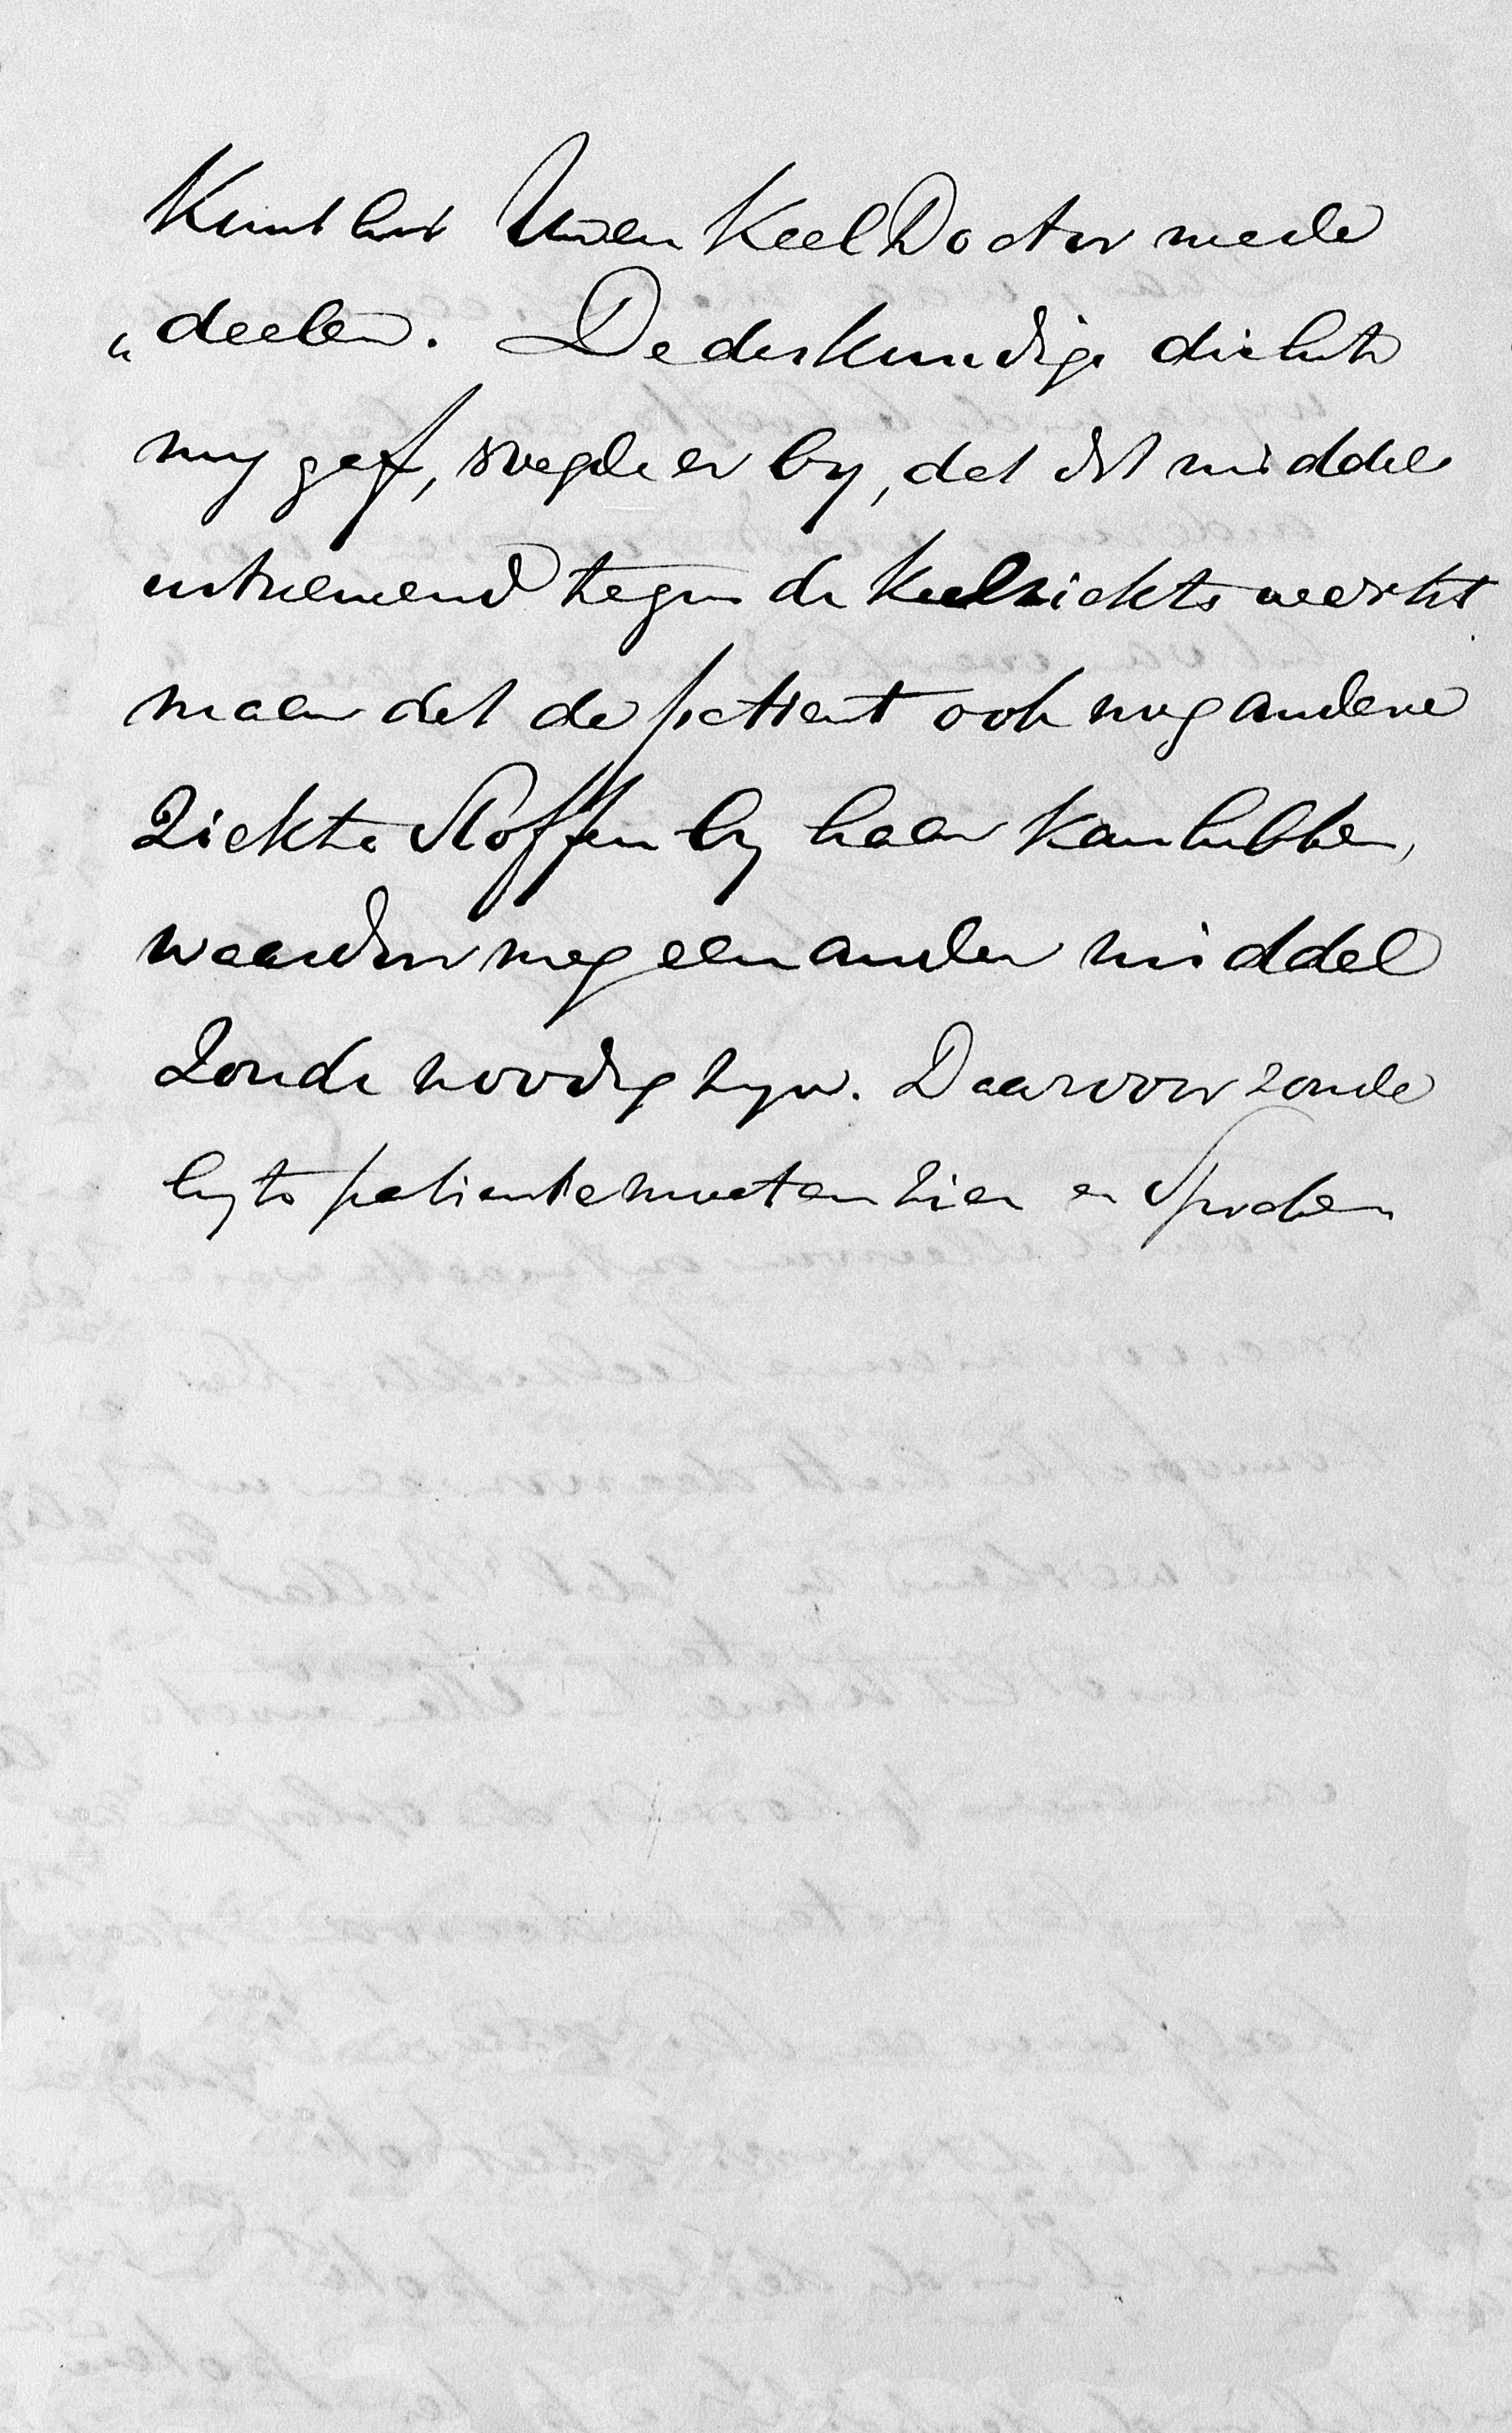 Kunt het Uwen Keel Doctor mede
„deelen. De deskundige die het
my gaf, voegde er by, dat dit middel
uitnemend tegen de keelziekte werkt
maar dat de patient ook nog andere
Ziekte Stoffen by haar kan hebben,
waarvoor nog een ander middel
Zoude noodig zyn. Daarvoor zoude
hy de patiente moeten zien en Spreken